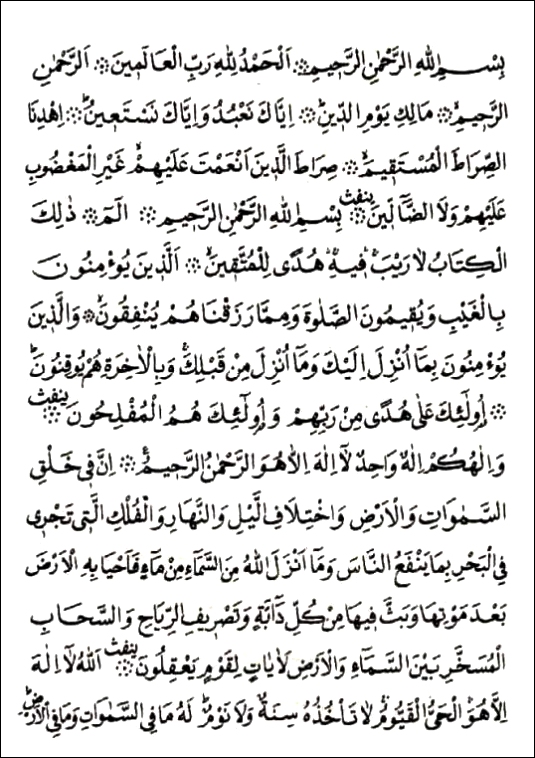 بِسْمِ اللهِ الرَّحْمٰنِ الرَّحِيمِ ۞ اَلْحَمْدُ لِلهِ رَبِّ الْعَالَمِينَ ۞ اَلرَّحْمٰنِ
الرَّحِيمِ ۞ مَالِكِ يَوْمِ الدِّينِ ۞ اِيَّاكَ نَعْبُدُ وَاِيَّاكَ نَسْتَعِينُ ۞ اِهْدِنَا
الصِّرَاطَ الْمُسْتَقِيمَ ۞ صِرَاطَ الَّذِينَ اَنْعَمْتَ عَلَيْهِمْ غَيْرِ الْمَغْضُوبِ
عَلَيْهِمْ وَلَا الضَّالِّينَ ۞ ينفث بِسْمِ اللهِ الرَّحْمٰنِ الرَّحِيمِ ۞ الٓمٓ ۞ ذٰلِكَ
الْكِتَابُ لَا رَيْبَ فِيهِ هُدًى لِلْمُتَّقِينَ ۞ اَلَّذِينَ يُوءْمِنُونَ
بِالْغَيْبِ وَيُقِيمُونَ الصَّلٰوةَ وَمِمَّا رَزَقْنَاهُمْ يُنْفِقُونَ ۞ وَالَّذِينَ
يُوءْمِنُونَ بِمَٓا اُنْزِلَ اِلَيْكَ وَمَٓا اُنْزِلَ مِنْ قَبْلِكَ وَبِالْاٰخِرَةِ هُمْ يُوقِنُونَ
۞ اُولٰٓئِكَ عَلٰى هُدًى مِنْ رَبِّهِمْ وَاُولٰٓئِكَ هُمُ الْمُفْلِحُونَ ۞ ينفث
وَاِلٰهُكُمْ اِلٰهٌ وَاحِدٌ لَٓا اِلٰهَ اِلَّا هُوَ الرَّحْمٰنُ الرَّحِيمُ ۞ اِنَّ فِى خَلْقِ
السَّمٰوَاتِ وَالْاَرْضِ وَاخْتِلَافِ الَّيْلِ وَالنَّهَارِ وَالْفُلْكِ الَّتِى تَجْرِى
فِى الْبَحْرِ بِمَا يَنْفَعُ النَّاسَ وَمَٓا اَنْزَلَ اللهُ مِنَ السَّمَٓاءِ مِنْ مَٓاءٍ فَاَحْيَا بِهِ الْاَرْضَ
بَعْدَ مَوْتِهَا وَبَثَّ فِيهَا مِنْ كُلِّ دَٓابَّةٍ وَتَصْرِيفِ الرِّيَاحِ وَالسَّحَابِ
الْمُسَخَّرِ بَيْنَ السَّمَٓاءِ وَالْاَرْضِ لَاٰيَاتٍ لِقَوْمٍ يَعْقِلُونَ ۞ ينفث اَللهُ لَٓا اِلٰهَ
اِلَّا هُوَ الْحَىُّ الْقَيُّومُ لَا تَاْخُذُهُ سِنَةٌ وَلَا نَوْمٌ لَهُ مَا فِى السَّمٰوَاتِ وَمَا فِى الْاَرْضِ